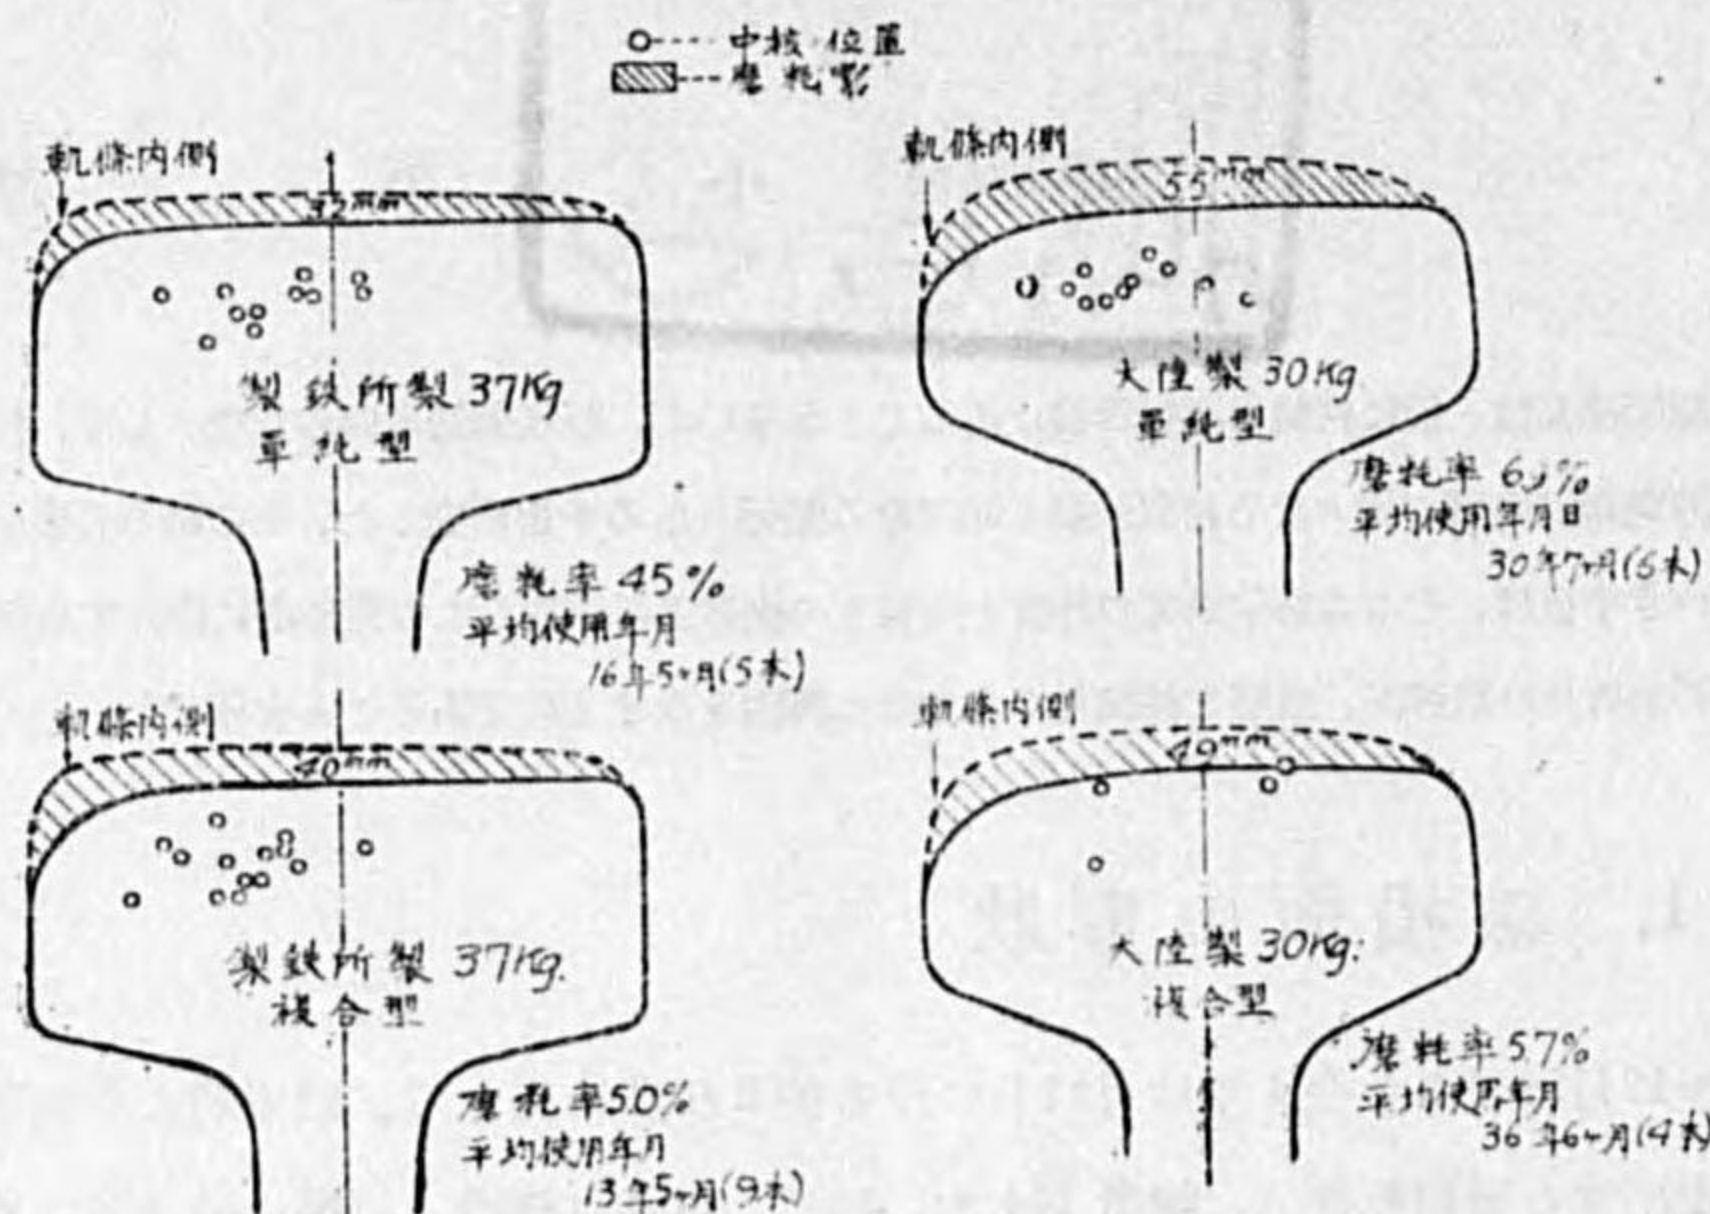 中核位置
磨耗
軌條内側
製鉄所製 37Kg
單純型
磨耗率 4.5%
平均使用年月
16年5ヶ月(5本)
軌條内側
55mm
大陸製 30Kg
單純型
磨耗率
平均使用年月日
30年7ヶ月(6本)
軌條内側
40mm
製鉄所製 37Kg.
複合型
磨耗率5.0%
平均使用年月
13年5ヶ月(9本)
軌條内側
49mm
大陸製 30Kg.
複合型
磨耗率5.7%
平均使用年月
36年6ヶ月(4本)